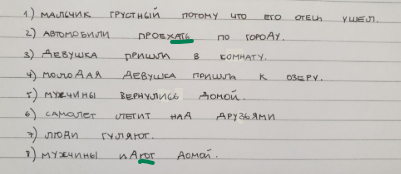 1) МАЛЬЧИК ГРУСТНЫЙ ПОТОМУ ЧТО ЕГО ОТЕЦ УШЕЛ.
2) АВТОМОБИЛИ ПРОЕХАТЬ ПО ГОРОДУ.
3) ДЕВУШКА ПРИШЛИ В КОМНАТУ.
4) МОЛОДАЯ ДЕВУШКА ПРИШЛИ К ОЗЕРУ.
5) МУЖЧИНЫ ВЕРНУЛИСЬ ДОМОЙ.
6) САМОЛЕТ ЛЕТИТ НАД ДРУЗЬЯМИ
7) ЛЮДИ ГУЛЯЮТ.
8) МУЖЧИНЫ ИДЯТ ДОМОЙ.